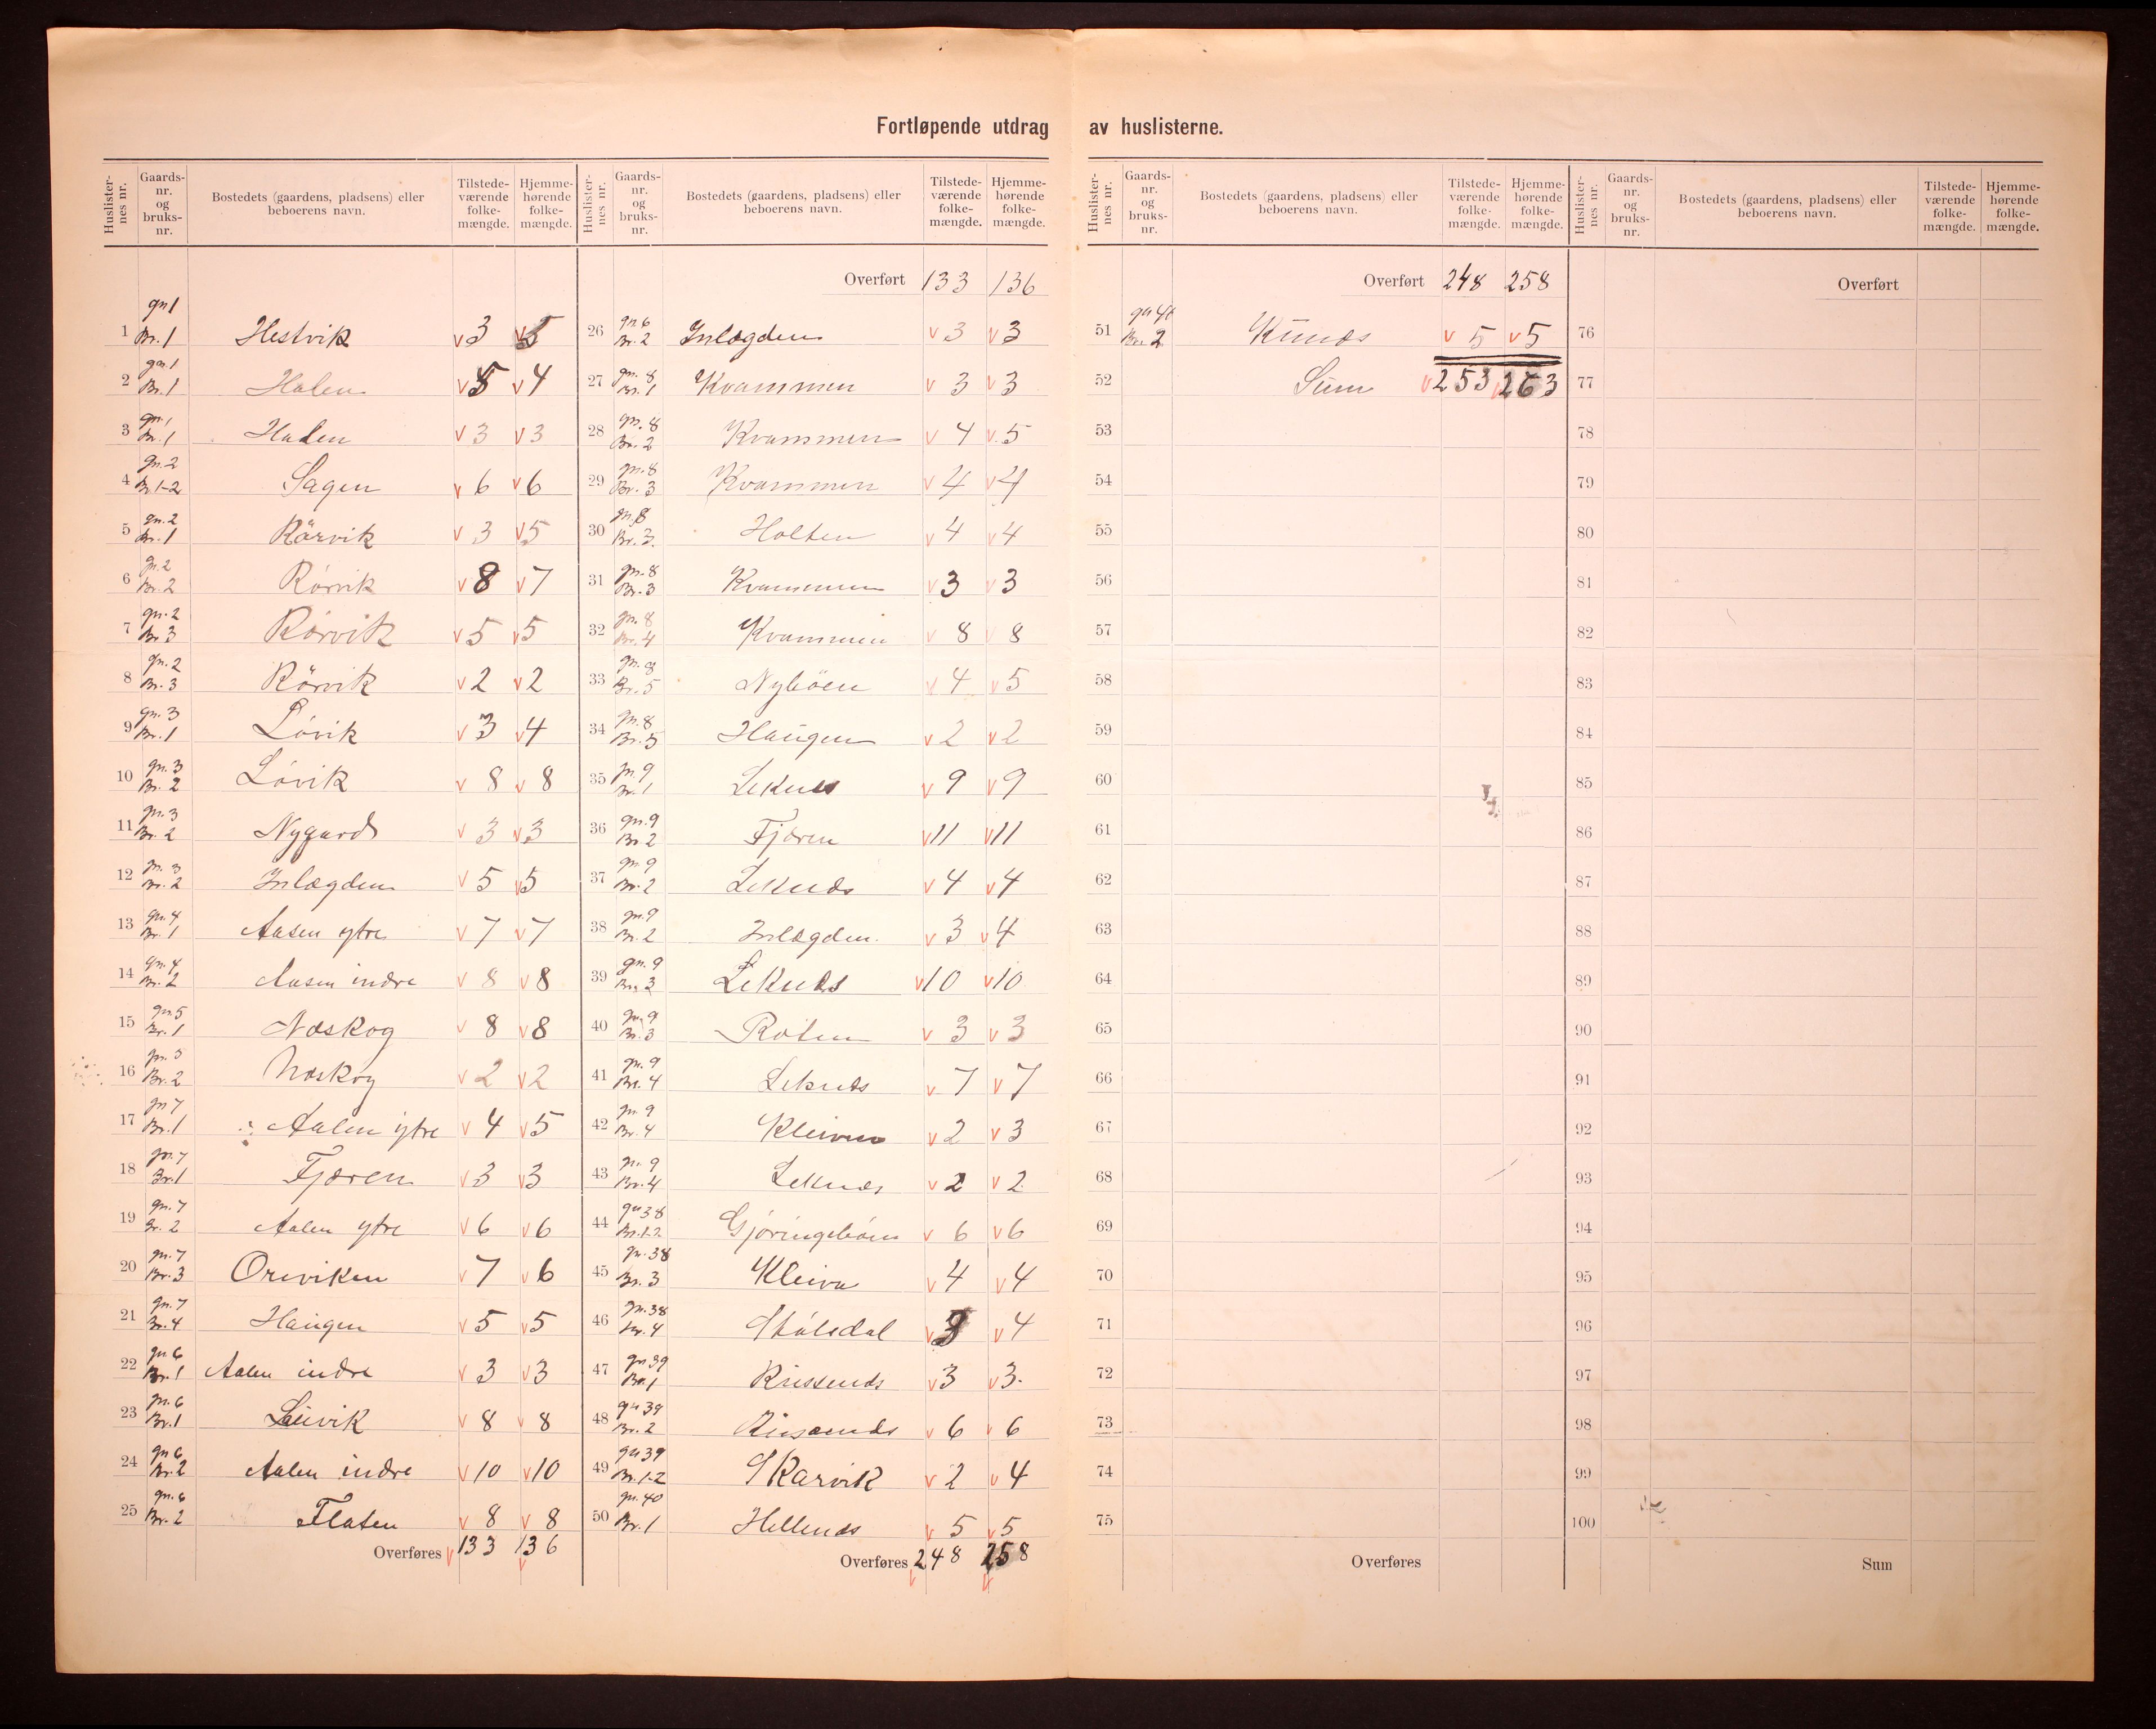 Fortløpende utdrag av huslisterne.
Huslister-nes nr. Gaards-nr. og bruks-nr. Bostedets (gaardens, pladsens) eller beboerens navn. Tilstede-værende folke-mængde. Hjemme-hørende folke-mængde.
gn 1
1 Br. 1 Hestvik v 3 v 5
gn. 1
2 Br. 1 Halen v 5 v 4
gn. 1
3 Br. 1 Halen v 3 v 3
gn. 2
4 Br. 1-2 Sagen v 6 v 6
gn. 2
5 Br. 1 Rörvik v 3 v 5
gn. 2
6 Br. 2 Rörvik v 8 v 7
gn. 2
7 Br. 3 Rörvik v 5 v 5
gn. 2
8 Br. 3 Rörvik v 2 v 2
gn. 3
9 Br. 1 Lövik v 3 v 4
gn. 3
10 Br. 2 Lövik v 8 v 8
gn. 3
11 Br. 2 Nygard v 3 v 3
gn. 3
12 Br. 2 Inlægden v 5 v 5
gn. 4
13 Br. 1 Aasen ytre v 7 v 7
gn. 4
14 Br. 2 Aasen indre v 8 v 8
gn. 5
15 Br. 1 Næskog v 8 v 8
gn. 5
16 Br. 2 Næskog v 2 v 2
gn 7
17 Br. 1 Aalen ytre v 4 v 5
gn. 7
18 Br. 1 Fjæren v 3 v 3
gn. 7
19 Br. 2 Aalen ytre v 6 v 6
gn. 7
20 Br. 3 Oreviken v 7 v 6
gn. 7
21 Br. 4 Haugen v 5 v 5
gn 6
22 Br. 1 Aalen indre v 3 v 3
gn. 6
23 Br. 1 v 8 v 8
gn 6
24 Br. 2 Aalen indre v 10 v 10
gn. 6
25 Br. 2 Flaten v 8 v 8
Overføres v 133 136
Huslister-nes nr. Gaards-nr. og bruks-nr. Bostedets (gaardens, pladsens) eller beboerens navn. Tilstede-værende folke-mængde. Hjemme-hørende folke-mængde.
Overført 133 136
gn. 6
26 Br. 2 Inlægden v 3 v 3
gn. 8
27 Br. 1 Kvammen v 3 v 3
gn. 8
28 Br. 2 Kvammen v 4 v 5
gn. 8
29 Br. 3 Kvammen v 4 v 4
gn. 8
30 Br. 3. Holten v 4 v 4
gn. 8
31 Br. 3 Kvammen v 3 v 3
gn. 8
32 Br. 4 Kvammen v 8 v 8
gn. 8
33 Br. 5 Nyböen v 4 v 5
gn. 8
34 Br. 5 Haugen v 2 v 2
gn. 9
35 Br. 1 Leknes v 9 v 9
gn. 9
36 Br. 2 Fjæren v 11 v 11
gn 9
37 Br. 2 Leknes v 4 v 4
gn. 9
38 Br. 2 Inlægden v 3 v 4
gn. 9
39 Br. 3 Leknes v 10 v 10
gn. 9
40 Br. 3 Roten v 3 v 3
gn. 9
41 Br. 4 Leknes v 7 v 7
gn. 9
42 Br. 4 Kleiven v 2 v 3
gn. 9
43 Br. 4 Leknes v 2 v 2
gn 38
44 Br. 1-2. Gjöringeböen v 6 v 6
gn. 38
45 Br. 3 Kleiva v 4 v 4
gn. 38
46 Br. 4 v 3 v 4
gn 39
47 Br. 1 v 3 v 3.
gn 39
48 Br. 2 v 6 v 6
gn 39
49 Br. 1-2 Skarvik v 2 v 4
gn. 40
50 Br. 1 Hellenes v 5 v 5
Overføres 248 258
Huslister-nes nr. Gaards-nr. og bruks-nr. Bostedets (gaardens, pladsens) eller beboerens navn. Tilstede-værende folke-mængde. Hjemme-hørende folke-mængde.
Overført 248 258
gn 41
51 Br. 2 v 5 v 5
52 Sum v 253 v 263
53
54
55
56
57
58
59
60
61
62
63
64
65
66
67
68
69
70
71
72
73
74
75
Overføres
Huslister-nes nr. Gaards-nr. og bruks-nr. Bostedets (gaardens, pladsens) eller beboerens navn. Tilstede-værende folke-mængde. Hjemme-hørende folke-mængde.
Overført
76
77
78
79
80
81
82
83
84
85
86
87
88
89
90
91
92
93
94
95
96
97
98
99
100
Sum